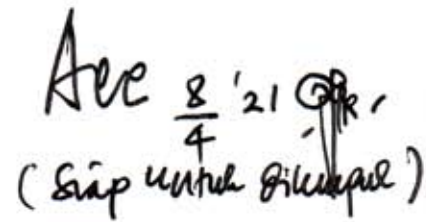 Acc 8/4 '21
(Siap untuk dikumpul)